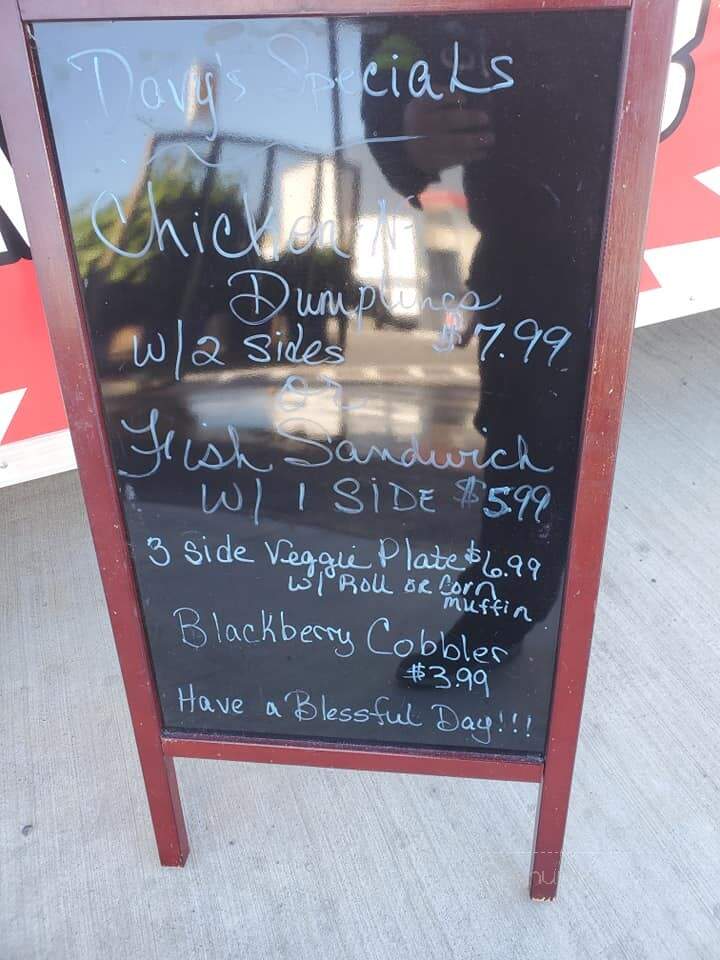 Davy's Specials
Chicken N
Dumplings
w/2 sides $7.99
or
Fish Sandwich
W/ 1 SIDE $5.99
3 side Veggie Plate $6.99
w/ Roll or Corn
muffin
Blackberry Cobbler
$3.99
Have a Blessful Day!!!